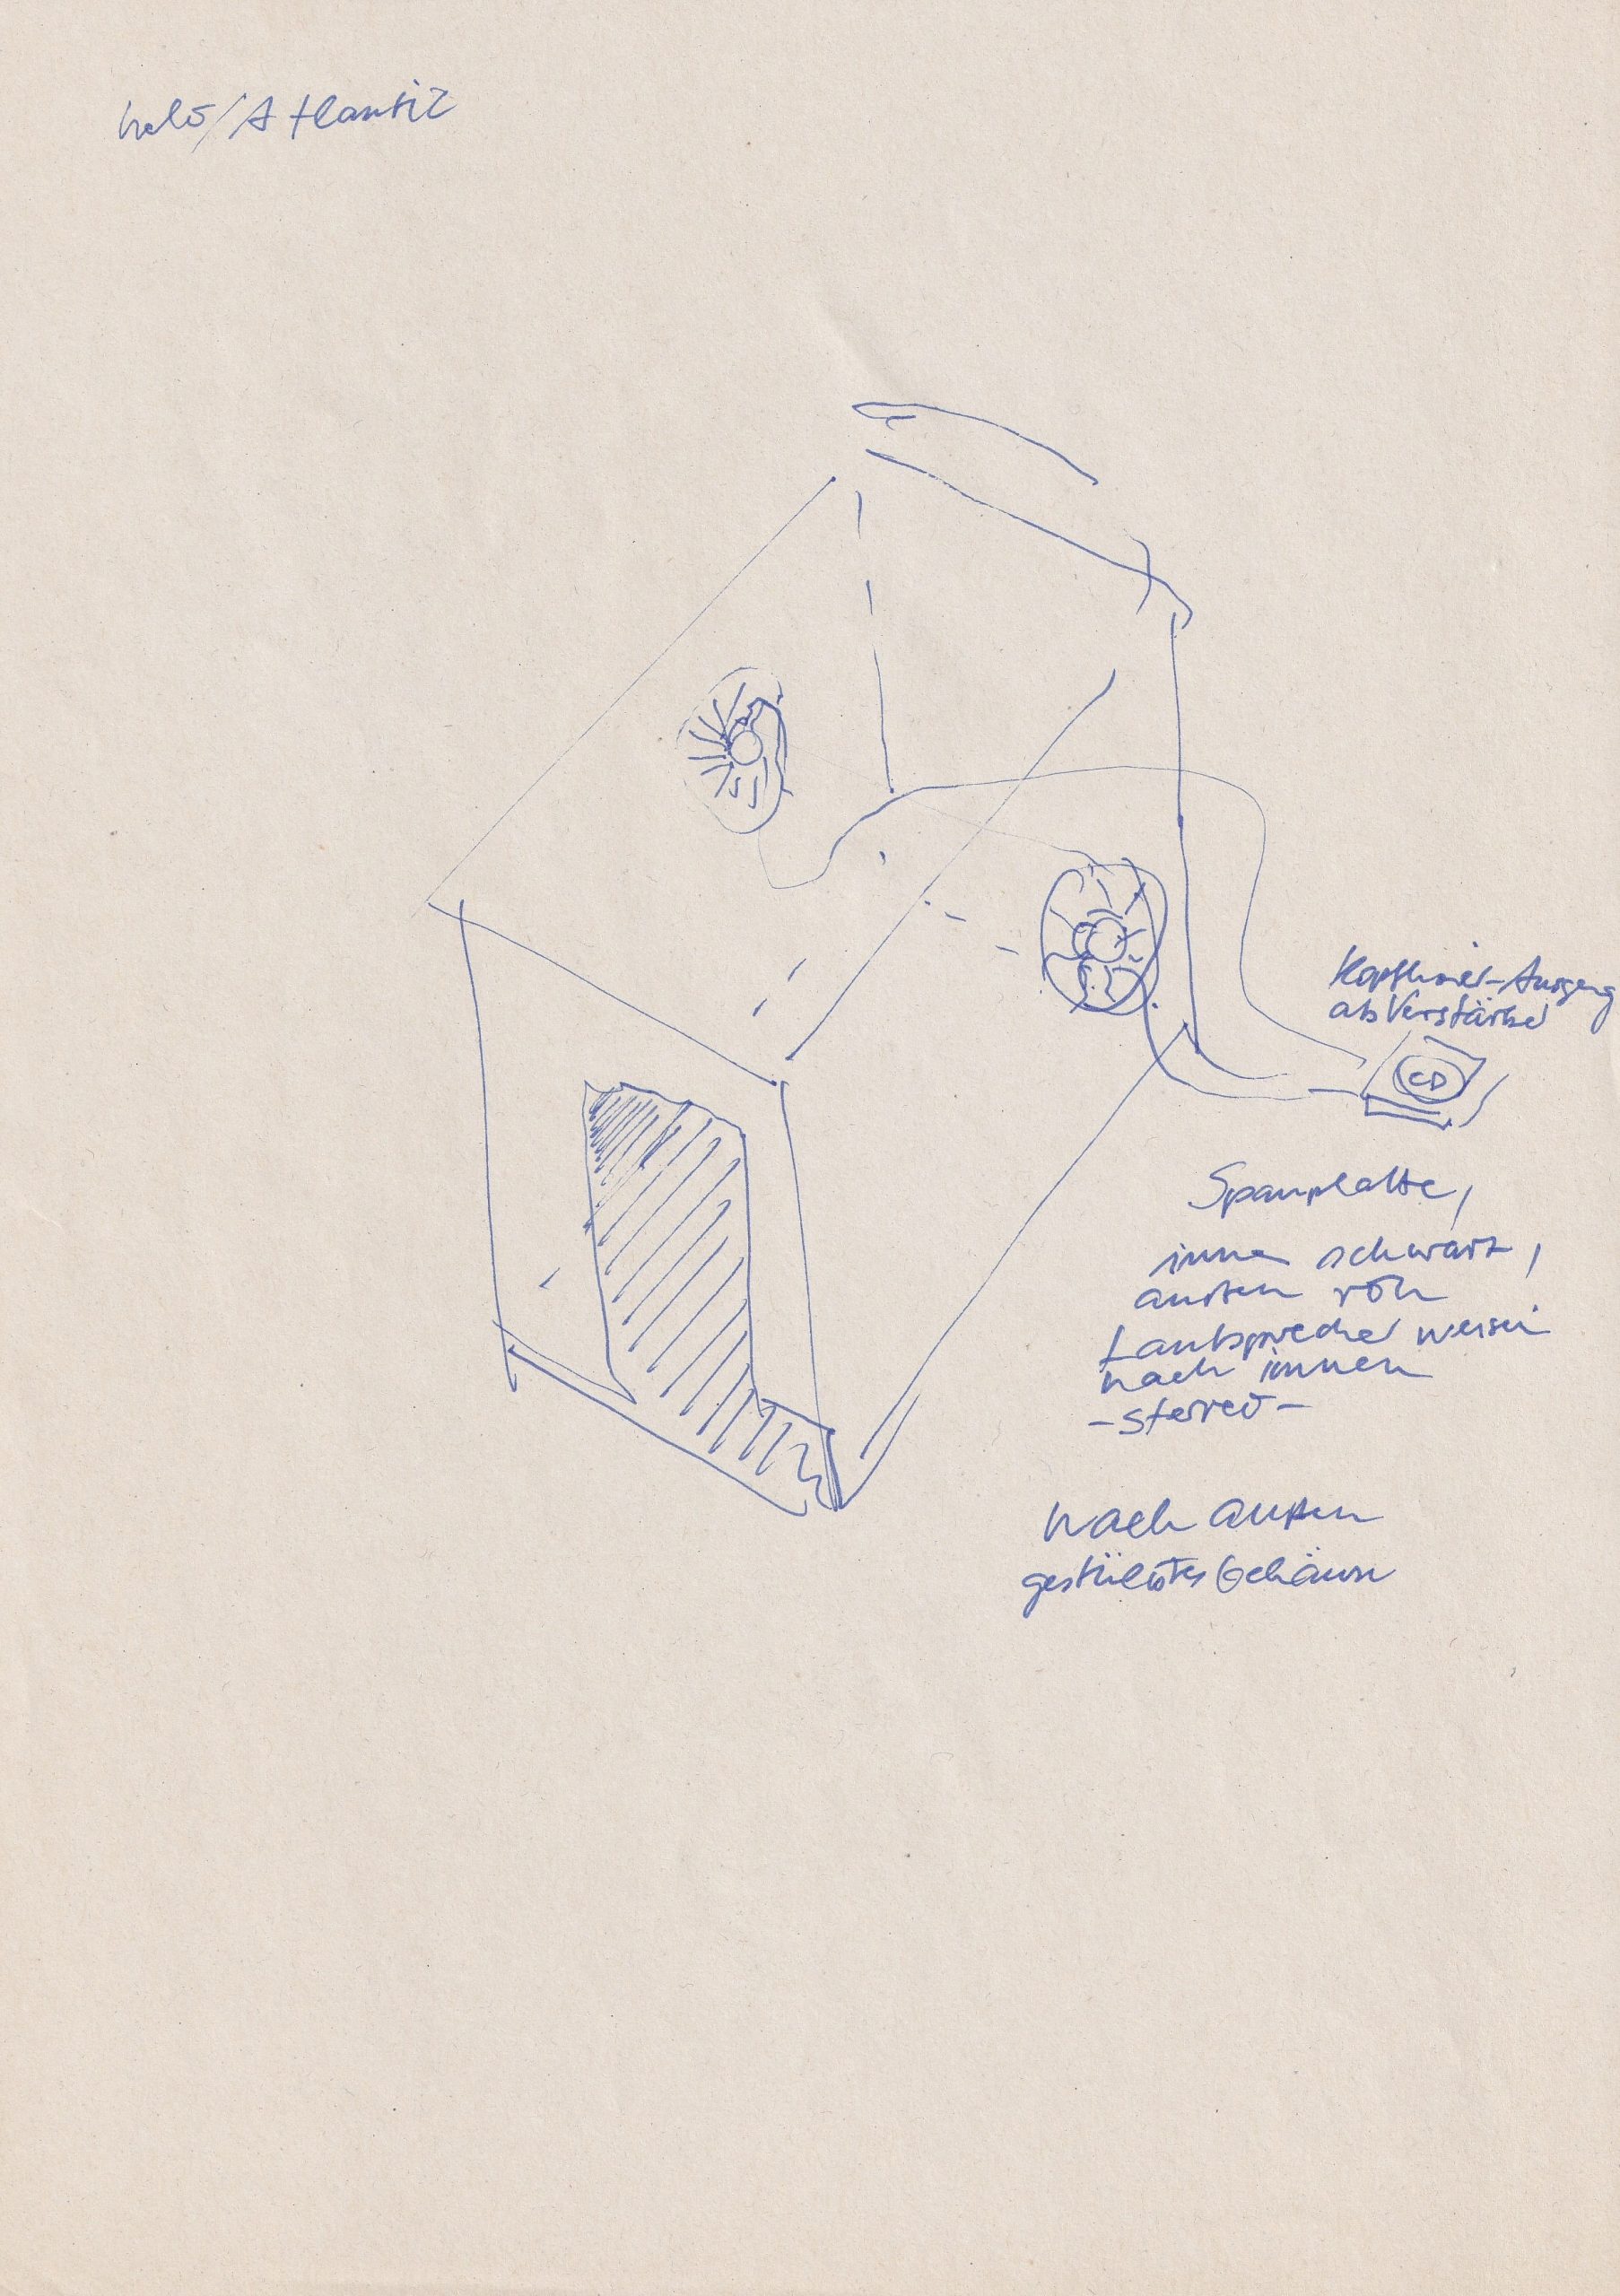 /Atlantic
Kopfhörer-Ausgang
als Verstärker
CD
Spanplatte,
innen schwarz,
aussen roh
Lautsprecher weisen
nach innen
-stereo-
nach außen
gestülptes Gehäuse